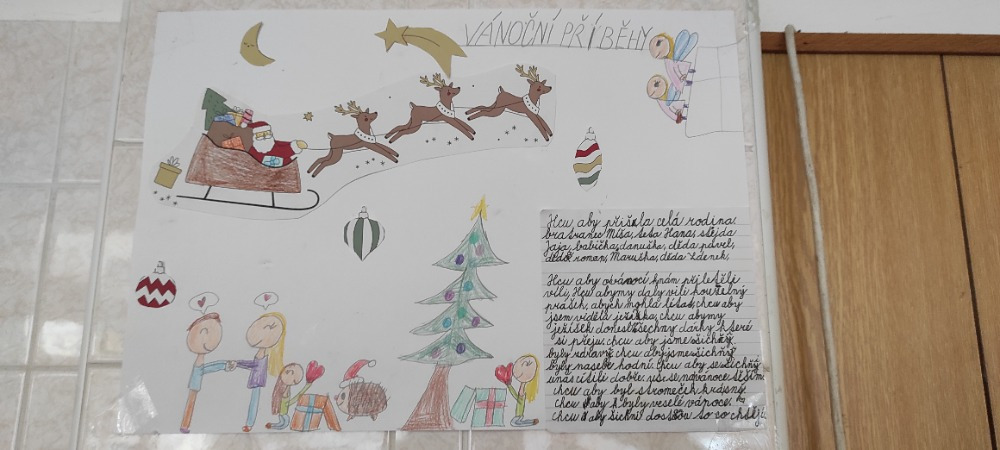 VÁNOČNÍ PŘÍBĚHY
Hcu aby přišela celá rodina
bratranec Míša, teta Hana, stejda
Jaja, babička, danuška, děda pavel,
děda roman, Maruška, děda Zdenek.
Hcu aby ovánocí knám přiletěli
víly, Hcu abymy daly víli kouzelný
prášek, abych mohla lítat, chcu aby
jsem viděla ježíška, chcu abymy
ježíšek donesl všechny dárky které
si přeju. chcu aby jsme sichžy
byly zdravý, chcu aby jsme sichňý
byly nasebe hodní. chcu aby se sichňý
unás cítili dobře. už se navánoce těším.
chcu aby byl stromeček krásný.
chcu aby byly veselé vánoce.
chcu aby sichni dostaon so co chtějí